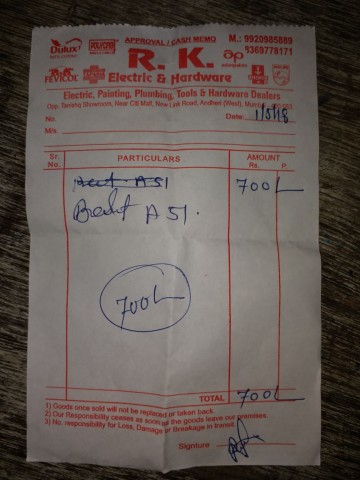 APPROVAL / CASH MEMO
M.: 9920985889
9369778171
Dulux
POLYCAB
R. K.
ap
asianpaints
FEVICOL
PHILIPS
Electric & Hardware
Electric, Painting, Plumbing, Tools & Hardware Dealers
Opp. Tanishq Showroom, Near Citi Mall, New Link Road, Andheri (West), Mumbai
No.
Date: 1/5/18
M/s.
Sr. No. PARTICULARS AMOUNT Rs. P.
A 51 700/-
A 51.
700/-
TOTAL 700/-
1) Goods once sold will not be replaced or taken back.
2) Our Responsibility ceases as soon as the goods leave our premises.
3) No. responsibility for Loss, Damage or Breakage in transit.
Signture